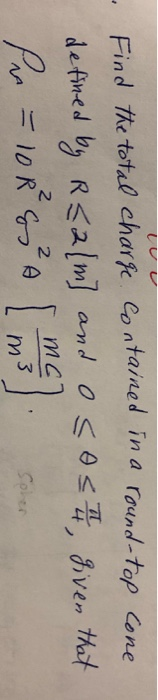 Find the total charge contained in a round-top cone
defined by R ≤ 2 [m] and 0 ≤ θ ≤ π/4, given that
ρᵥ = 10 R² Cos² θ [mC/m³].